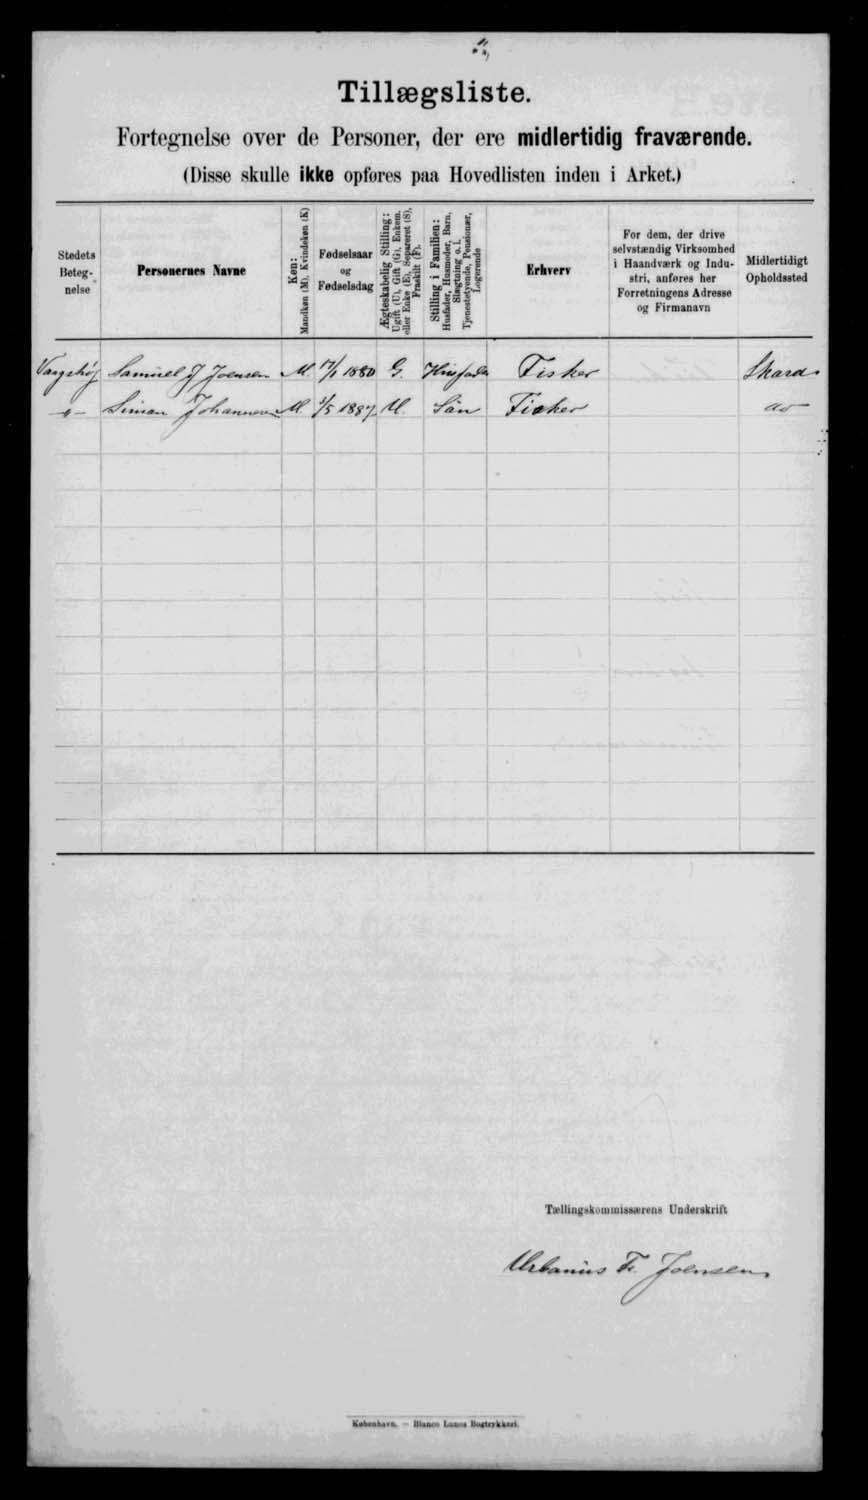 Tillægsliste.
Fortegnelse over de Personer, der ere midlertidig fraværende.
(Disse skulle ikke opføres paa Hovedlisten inden i Arket.)
Stedets
Beteg-
nelse
Personernes Navne
Køn:
Mandkøn (M), Kvindekøn (K)
Fødselsaar
og
Fødselsdag
Ægteskabelig Stilling:
Ugift (U), Gift (G), Enkem.
eller Enke (E), Separeret (S),
Fraskilt (F).
Stilling i Familien:
Husfader, Husmoder, Barn,
Slægtning o. l.
Tjenestetyende, Pensionær,
Logerende
Erhverv
For dem, der drive
selvstændig Virksomhed
i Haandværk og Indu-
stri, anføres her
Forretningens Adresse
og Firmanavn
Midlertidigt
Opholdssted
Samuel J Joensen M 17/1 1880 G. Husfader Fisker Skard
Simon Johannesen M. 1/5 1887 U. Sön Fisker do
Tællingskommissærens Underskrift
Urbanus Fr. Joensen
København. — Bianco Lunos Bogtrykkeri.